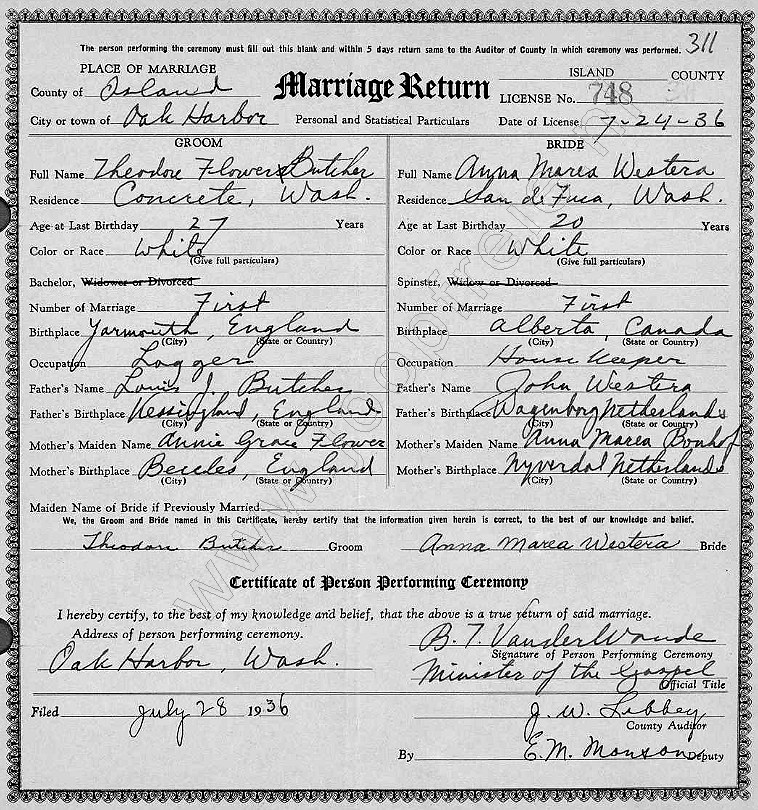 The person performing the ceremony must fill out this blank and within 5 days return same to the Auditor of County in which ceremony was performed. 311
PLACE OF MARRIAGE
County of Island
City or town of Oak Harbor
Marriage Return
Personal and Statistical Particulars
ISLAND COUNTY
LICENSE No. 748 311
Date of License 7-24-36
GROOM
Full Name Theodore Flowers Butcher
Residence Concrete, Wash.
Age at Last Birthday 27 Years
Color or Race White
(Give full particulars)
Bachelor, Widower or Divorced
Number of Marriage First
Birthplace Yarmouth, England
(City) (State or Country)
Occupation Logger
Father's Name Louis J. Butcher
Father's Birthplace Kessingland, England
(City) (State or Country)
Mother's Maiden Name Annie Grace Flower
Mother's Birthplace Beccles, England
(City) (State or Country)
BRIDE
Full Name Anna Marea Westera
Residence San de Fuca, Wash.
Age at Last Birthday 20 Years
Color or Race White
(Give full particulars)
Spinster, Widow or Divorced
Number of Marriage First
Birthplace Alberta, Canada
(City) (State or Country)
Occupation House Keeper
Father's Name John Westera
Father's Birthplace Wagenborg Netherlands
(City) (State or Country)
Mother's Maiden Name Anna Marea Bonhof
Mother's Birthplace Nyverdal Netherlands
(City) (State or Country)
Maiden Name of Bride if Previously Married
We, the Groom and Bride named in this Certificate, hereby certify that the information given herein is correct, to the best of our knowledge and belief.
Theodore Butcher Groom Anna Marea Westera Bride
Certificate of Person Performing Ceremony
I hereby certify, to the best of my knowledge and belief, that the above is a true return of said marriage.
Address of person performing ceremony.
Oak Harbor, Wash.
B. T. VanderWoude
Signature of Person Performing Ceremony
Minister of the Gospel
Official Title
Filed July 28 1936
J. W. Libbey
County Auditor
By E. M. Monson Deputy